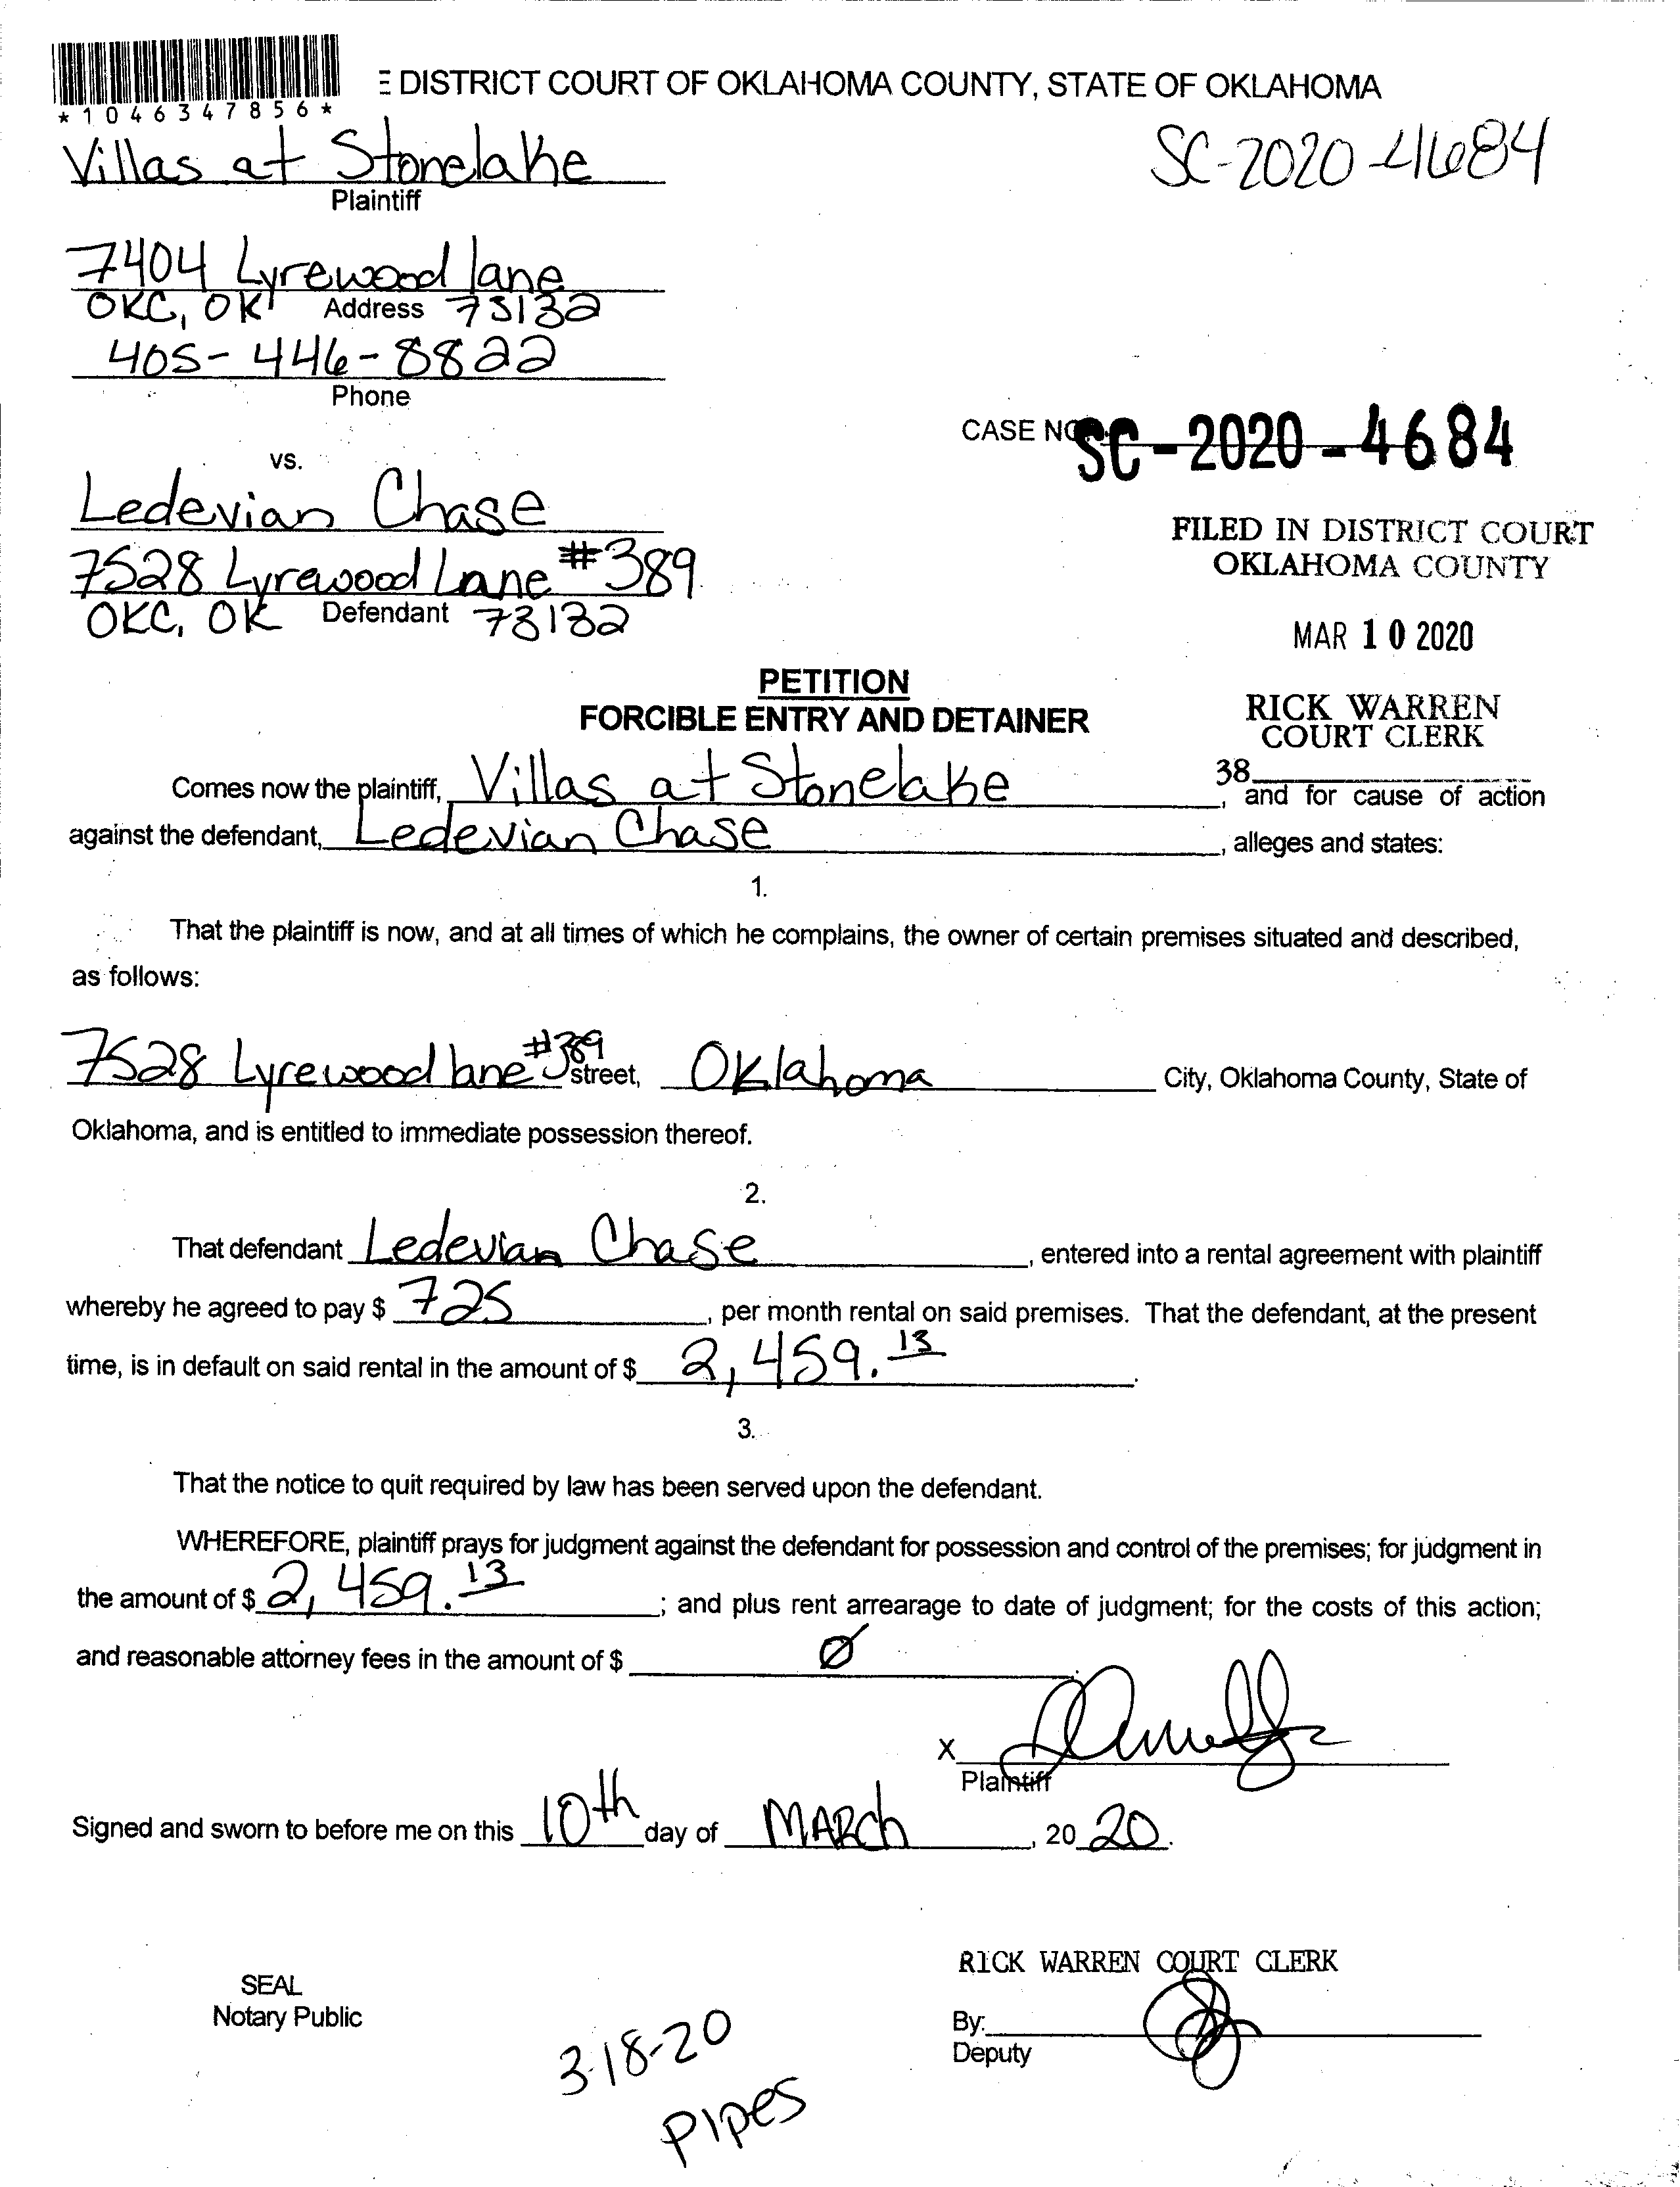 *1046347856*
E DISTRICT COURT OF OKLAHOMA COUNTY, STATE OF OKLAHOMA
Villas at Stonelake
Plaintiff
SC-2020-4684
7404 Lyrewood lane
OKC, OK Address 73132
405-446-8822
Phone
CASE NO. SC-2020-4684
vs.
Ledevian Chase
7528 Lyrewood Lane #389
OKC, OK Defendant 73132
FILED IN DISTRICT COURT
OKLAHOMA COUNTY
MAR 10 2020
RICK WARREN
COURT CLERK
38
PETITION
FORCIBLE ENTRY AND DETAINER
Comes now the plaintiff, Villas at Stonelake, and for cause of action
against the defendant, Ledevian Chase, alleges and states:
1.
That the plaintiff is now, and at all times of which he complains, the owner of certain premises situated and described,
as follows:
7528 Lyrewood lane #389 street, Oklahoma City, Oklahoma County, State of
Oklahoma, and is entitled to immediate possession thereof.
2.
That defendant Ledevian Chase, entered into a rental agreement with plaintiff
whereby he agreed to pay $ 725, per month rental on said premises. That the defendant, at the present
time, is in default on said rental in the amount of $ 2,459.13.
3.
That the notice to quit required by law has been served upon the defendant.
WHEREFORE, plaintiff prays for judgment against the defendant for possession and control of the premises; for judgment in
the amount of $ 2,459.13; and plus rent arrearage to date of judgment; for the costs of this action;
and reasonable attorney fees in the amount of $ Ø
X
Plaintiff
Signed and sworn to before me on this 10th day of MARch, 20 20.
RICK WARREN COURT CLERK
SEAL
Notary Public
By:
Deputy
3-18-20
Pipes